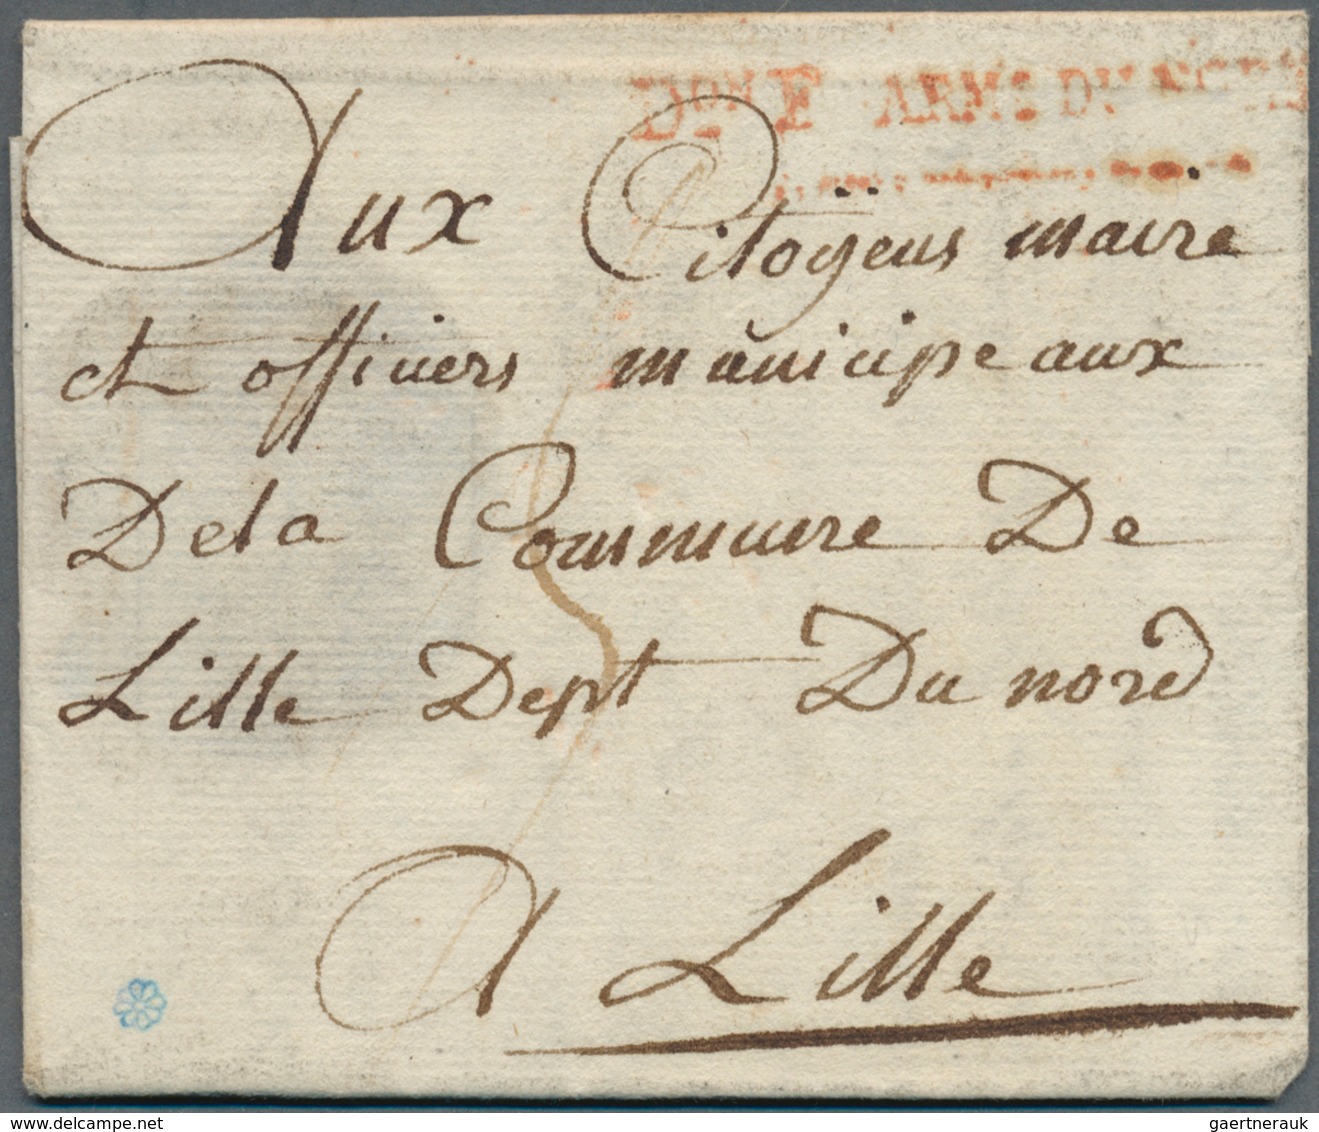 Don F ARME DU NORD
Aux Citoÿens maire
et officiers municipeaux
De la Commune De
Lille Dept Du nord
A Lille
gaertnerauk